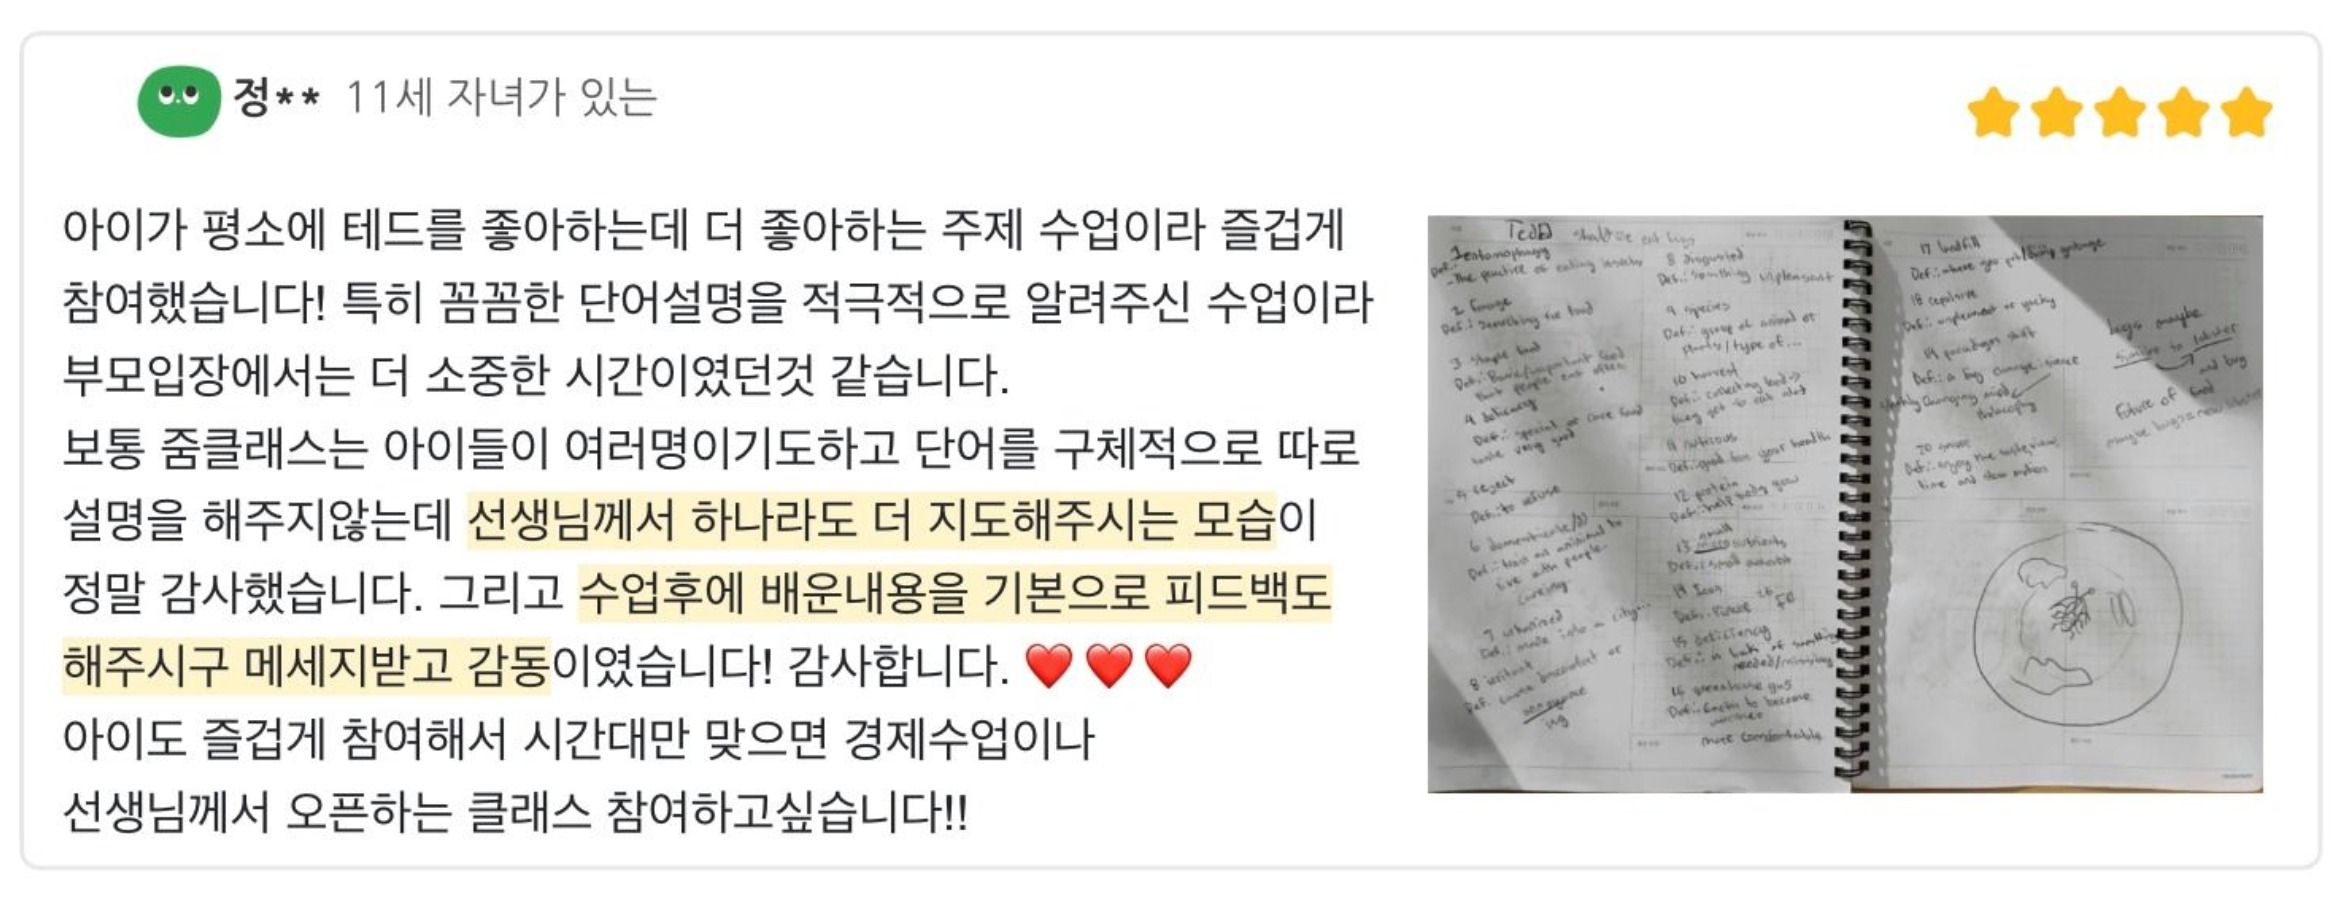 정** 11세 자녀가 있는
아이가 평소에 테드를 좋아하는데 더 좋아하는 주제 수업이라 즐겁게
참여했습니다! 특히 꼼꼼한 단어설명을 적극적으로 알려주신 수업이라
부모입장에서는 더 소중한 시간이였던것 같습니다.
보통 줌클래스는 아이들이 여러명이기도하고 단어를 구체적으로 따로
설명을 해주지않는데 선생님께서 하나라도 더 지도해주시는 모습이
정말 감사했습니다. 그리고 수업후에 배운내용을 기본으로 피드백도
해주시구 메세지받고 감동이였습니다! 감사합니다. ❤️❤️❤️
아이도 즐겁게 참여해서 시간대만 맞으면 경제수업이나
선생님께서 오픈하는 클래스 참여하고싶습니다!!
1 entomophagy
- the practice of eating insects
2 forage
Def.: searching for food
3 staple food
that people eat often
4 delicacy
Def.: special or rare food
taste very good
5 reject
Def.: to refuse
live with people.
7 urbanized
Def.: made into a city...
8 irritant
annoyance
8 disgusted
Def.: something unpleasant
9 species
Def.: group of animal or
plants/type of...
10 harvest
11 nutrious
Def.: good for your health
12 protein
Def.: help body grow
small
13 micronutrients
14 Iron
15 deficiency
needed/missing
16 greenhouse gas
more comfortable
17 landfill
18 repulsive
Def.: unpleasant or yucky
19 paradigm shift
bugs maybe
similar to lobster
and bug
Future of food
time and slow motion